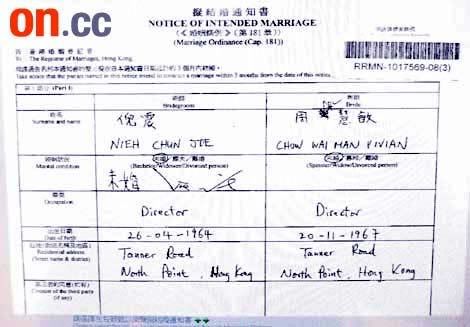 on.cc
擬結婚通知書
NOTICE OF INTENDED MARRIAGE
(《婚姻條例》(第181章)
(Marriage Ordinance (Cap. 181))
RRMN-1017569-08(3)
To The Registrar of Marriages, Hong Kong
Take notice that the parties named in this notice intend to contract a marriage within 3 months from the date of this notice.
(Part I)
Bridegroom
Bride
姓名
Surname and name
倪震
周慧敏
NIEH CHUN JOE
CHOW WAI MAN VIVIAN
婚姻狀況
Marital condition
(Bachelor/Widower/Divorced person)
(Spinster/Widow/Divorced person)
未婚
職業
Occupation
Director
Director
出生日期
Date of birth
26-04-1964
20-11-1967
Residential address
(Street name & district)
Tanner Road
North Point, Hong Kong
Tanner Road
North Point, Hong Kong
Consent of the third party
(if any)